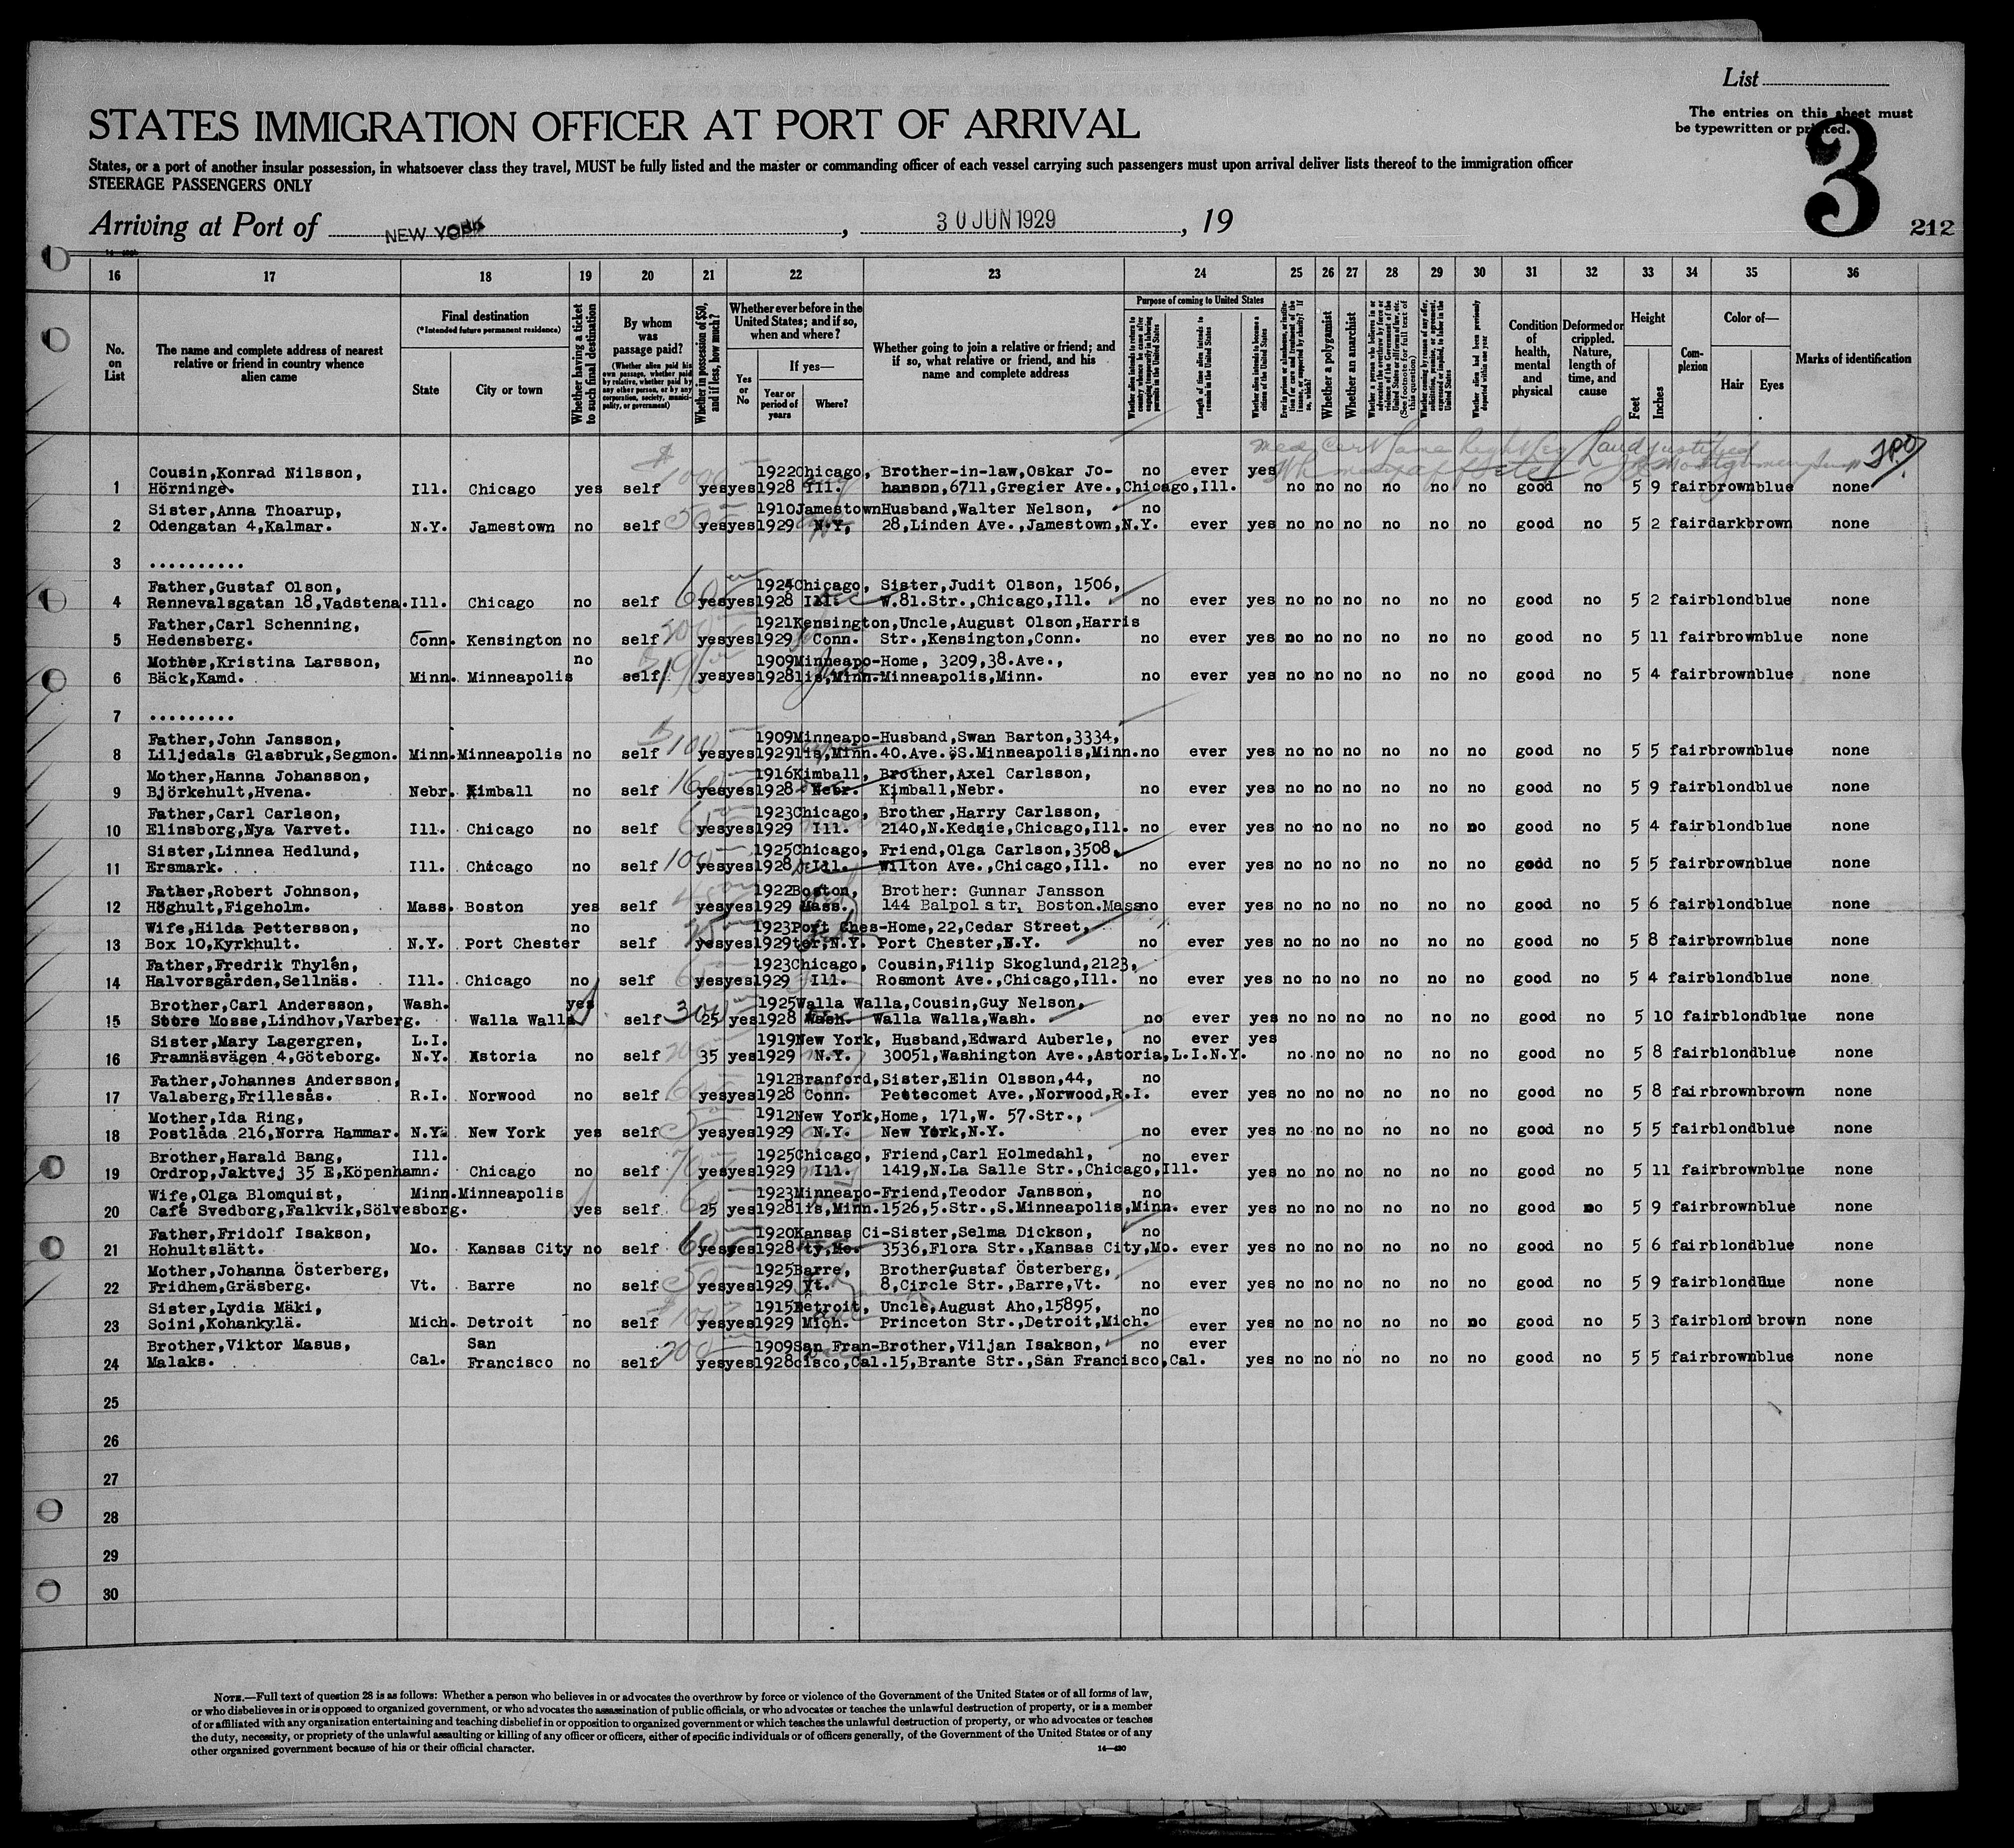 List
The entries on this sheet must
be typewritten or printed.
3
212
STATES IMMIGRATION OFFICER AT PORT OF ARRIVAL
States, or a port of another insular possession, in whatsoever class they travel, MUST be fully listed and the master or commanding officer of each vessel carrying such passengers must upon arrival deliver lists thereof to the immigration officer
STEERAGE PASSENGERS ONLY
Arriving at Port of NEW YORK, 30 JUN 1929, 19
16 17 18 19 20 21 22 23 24 25 26 27 28 29 30 31 32 33 34 35 36
No. on List
The name and complete address of nearest relative or friend in country whence alien came
Final destination
(*Intended future permanent residence)
State
City or town
Whether having a ticket to such final destination
By whom was passage paid?
(Whether alien paid his own passage, whether paid by relative, whether paid by any other person, or by any corporation, society, municipality, or government)
Whether in possession of $50, and if less, how much?
Whether ever before in the United States; and if so, when and where?
Yes or No
If yes—
Year or period of years
Where?
Whether going to join a relative or friend; and if so, what relative or friend, and his name and complete address
Purpose of coming to United States
Length of time alien intends to remain in the United States
Whether alien intends to become a citizen of the United States
Whether a polygamist
Whether an anarchist
Whether alien had been previously deported within one year
Condition of health, mental and physical
Deformed or crippled. Nature, length of time, and cause
Height
Feet
Inches
Complexion
Color of—
Hair
Eyes
Marks of identification
Cousin,Konrad Nilsson, 1922 Chicago, Brother-in-law,Oskar Jo- no ever yes
1 Hörninge. Ill. Chicago yes self 1000 yes yes 1928 Ill. hanson,6711,Gregier Ave.,Chicago,Ill. no no no no no no good no 5 9 fair brown blue none
Sister,Anna Thoarup, 1910 Jamestown Husband,Walter Nelson, no
2 Odengatan 4,Kalmar. N.Y. Jamestown no self 50 yes yes 1929 N.Y. 28,Linden Ave.,Jamestown,N.Y. ever yes no no no no no no good no 5 2 fair dark brown none
3 ..........
Father,Gustaf Olson, 1924 Chicago, Sister,Judit Olson, 1506,
4 Rennevalsgatan 18,Vadstena. Ill. Chicago no self 60 yes yes 1928 Ill. W.81.Str.,Chicago,Ill. no ever yes no no no no no no good no 5 2 fair blond blue none
Father,Carl Schenning, 1921 Kensington,Uncle,August Olson,Harris
5 Hedensberg. Conn. Kensington no self 200 yes yes 1929 Conn. Str.,Kensington,Conn. no ever yes no no no no no no good no 5 11 fair brown blue none
Mother,Kristina Larsson, no 1909 Minneapo-Home, 3209,38.Ave.,
6 Bäck,Kamd. Minn. Minneapolis self yes yes 1928 lis,Minn. Minneapolis,Minn. no ever yes no no no no no no good no 5 4 fair brown blue none
7 .........
Father,John Jansson, 1909 Minneapo-Husband,Swan Barton,3334,
8 Liljedals Glasbruk,Segmon. Minn. Minneapolis no self 100 yes yes 1929 lis,Minn. 40.Ave.öS.Minneapolis,Minn. no ever yes no no no no no no good no 5 5 fair brown blue none
Mother,Hanna Johansson, 1916 Kimball, Brother,Axel Carlsson,
9 Björkehult,Hvena. Nebr. Kimball no self yes yes 1928 Nebr. Kimball,Nebr. no ever yes no no no no no no good no 5 9 fair blond blue none
Father,Carl Carlson, 1923 Chicago, Brother,Harry Carlsson,
10 Elinsborg,Nya Varvet. Ill. Chicago no self yes yes 1929 Ill. 2140,N.Kedzie,Chicago,Ill. no ever yes no no no no no no good no 5 4 fair blond blue none
Sister,Linnea Hedlund, 1925 Chicago, Friend,Olga Carlson,3508,
11 Ersmark. Ill. Chicago no self 100 yes yes 1928 Ill. Wilton Ave.,Chicago,Ill. no ever yes no no no no no no good no 5 5 fair brown blue none
Father,Robert Johnson, 1922 Boston, Brother: Gunnar Jansson
12 Höghult,Figeholm. Mass. Boston yes self yes yes 1929 Mass. 144 Balpolstr, Boston.Mass no ever yes no no no no no no good no 5 6 fair blond blue none
Wife,Hilda Pettersson, no 1923 Port Ches-Home,22,Cedar Street,
13 Box 10,Kyrkhult. N.Y. Port Chester self yes yes 1929 ter,N.Y. Port Chester,N.Y. no ever yes no no no no no no good no 5 8 fair brown blue none
Father,Fredrik Thylén, 1923 Chicago, Cousin,Filip Skoglund,2123,
14 Halvorsgården,Sellnäs. Ill. Chicago no self yes yes 1929 Ill. Rosmont Ave.,Chicago,Ill. no ever yes no no no no no no good no 5 4 fair blond blue none
Brother,Carl Andersson, Wash. yes 1925 Walla Walla,Cousin,Guy Nelson,
15 Store Mosse,Lindhov,Varberg. Walla Walla self 300 25 yes 1928 Wash. Walla Walla,Wash. no ever yes no no no no no no good no 5 10 fair blond blue none
Sister,Mary Lagergren, L.I. 1919 New York, Husband,Edward Auberle, no ever yes
16 Framnäsvägen 4,Göteborg. N.Y. Astoria no self 200 35 yes 1929 N.Y. 30051,Washington Ave.,Astoria,L.I.N.Y. no no no no no no good no 5 8 fair blond blue none
Father,Johannes Andersson, 1912 Branford,Sister,Elin Olsson,44, no
17 Valaberg,Frillesås. R.I. Norwood no self yes yes 1928 Conn. Pettecomet Ave.,Norwood,R.I. ever yes no no no no no no good no 5 8 fair brown brown none
Mother,Ida Ring, 1912 New York,Home, 171,W. 57.Str.,
18 Postlåda 216,Norra Hammar. N.Y. New York yes self yes yes 1929 N.Y. New York,N.Y. no ever yes no no no no no no good no 5 5 fair blond blue none
Brother,Harald Bang, Ill. 1925 Chicago, Friend,Carl Holmedahl, no ever
19 Ordrop,Jaktvej 35 E,Köpenhamn. Chicago no self 70 yes yes 1929 Ill. 1419,N.La Salle Str.,Chicago,Ill. yes no no no no no no good no 5 11 fair brown blue none
Wife,Olga Blomquist, Minn. Minneapolis 1923 Minneapo-Friend,Teodor Jansson, no
20 Café Svedborg,Falkvik,Sölvesborg. yes self 25 yes 1928 lis,Minn. 1526,5.Str.,S.Minneapolis,Minn. ever yes no no no no no no good no 5 9 fair brown blue none
Father,Fridolf Isakson, 1920 Kansas Ci-Sister,Selma Dickson, no
21 Hohultslätt. Mo. Kansas City no self 60 yes yes 1928 ty,Mo. 3536,Flora Str.,Kansas City,Mo. ever yes no no no no no no good no 5 6 fair blond blue none
Mother,Johanna Österberg, 1925 Barre, Brother Gustaf Österberg,
22 Fridhem,Gräsberg. Vt. Barre no self 50 yes yes 1929 Vt. 8,Circle Str.,Barre,Vt. no ever yes no no no no no no good no 5 9 fair blond blue none
Sister,Lydia Mäki, 1915 Detroit, Uncle,August Aho,15895, no
23 Soini,Kohankylä. Mich. Detroit no self 100 yes yes 1929 Mich. Princeton Str.,Detroit,Mich. ever yes no no no no no no good no 5 3 fair blond brown none
Brother,Viktor Masus, San 1909 San Fran-Brother,Viljan Isakson, no ever
24 Malaks. Cal. Francisco no self 200 yes yes 1928 cisco,Cal. 15,Brante Str.,San Francisco,Cal. yes no no no no no no good no 5 5 fair brown blue none
25
26
27
28
29
30
NOTE.—Full text of question 28 is as follows: Whether a person who believes in or advocates the overthrow by force or violence of the Government of the United States or of all forms of law,
or who disbelieves in or is opposed to organized government, or who advocates the assassination of public officials, or who advocates or teaches the unlawful destruction of property, or is a member
of or affiliated with any organization entertaining and teaching disbelief in or opposition to organized government or which teaches the unlawful destruction of property, or who advocates or teaches
the duty, necessity, or propriety of the unlawful assaulting or killing of any officer or officers, either of specific individuals or of officers generally, of the Government of the United States or of any
other organized government because of his or their official character.
14—430